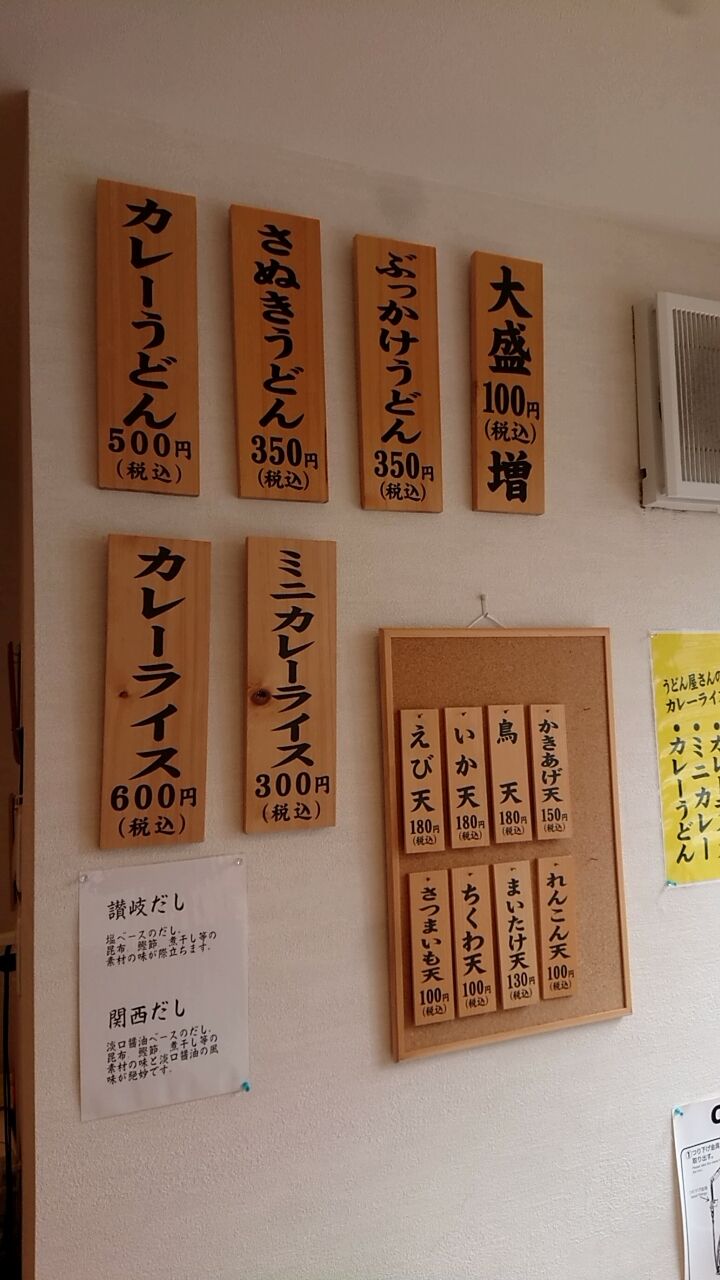 カレーうどん
500円
(税込)
さぬきうどん
350円
(税込)
ぶっかけうどん
350円
(税込)
大盛
100円
(税込)
増
カレーライス
600円
(税込)
ミニカレーライス
300円
(税込)
えび天
180円
(税込)
いか天
180円
(税込)
鳥天
180円
(税込)
かきあげ天
150円
(税込)
さつまいも天
100円
(税込)
ちくわ天
100円
(税込)
まいたけ天
130円
(税込)
れんこん天
100円
(税込)
讃岐だし
塩ベースのだし。
昆布 鰹節 煮干し等の
素材の味が際立ちます。
関西だし
淡口醤油ベースのだし。
昆布 鰹節 煮干し等の
素材の味と淡口醤油の風
味が絶妙です。
うどん屋さんの
カレーライ
・ミニカレー
・カレーうどん
①つり下げ金具
取り出す。